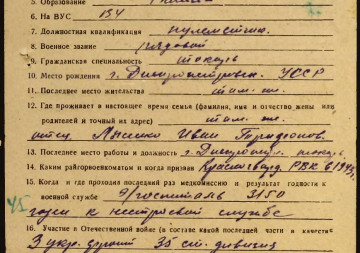 5. Образование
6. На ВУС 134
7. Должностная квалификация пулеметчик
8. Военное звание рядовой
9. Гражданская специальность токарь
10. Место рождения г. Днепропетровск. УССР
11. Последнее место жительства там. же.
12. Где проживает в настоящее время семья (фамилия, имя и отчество жены или
родителей и точный их адрес) там. же.
отец Иван
13. Последнее место работы и должность г. Днепропет. токарь
14. Каким райгорвоенкоматом и когда призван Красногвард. РВК в 194
15. Когда и где проходил последний раз медкомиссию и результат годности к
военной службе Э/госпиталь 3150
45 годен к нестроевой службе
16. Участие в Отечественной войне (в составе какой последней части и качестве
3 укр. фронт 35 ст. дивизия